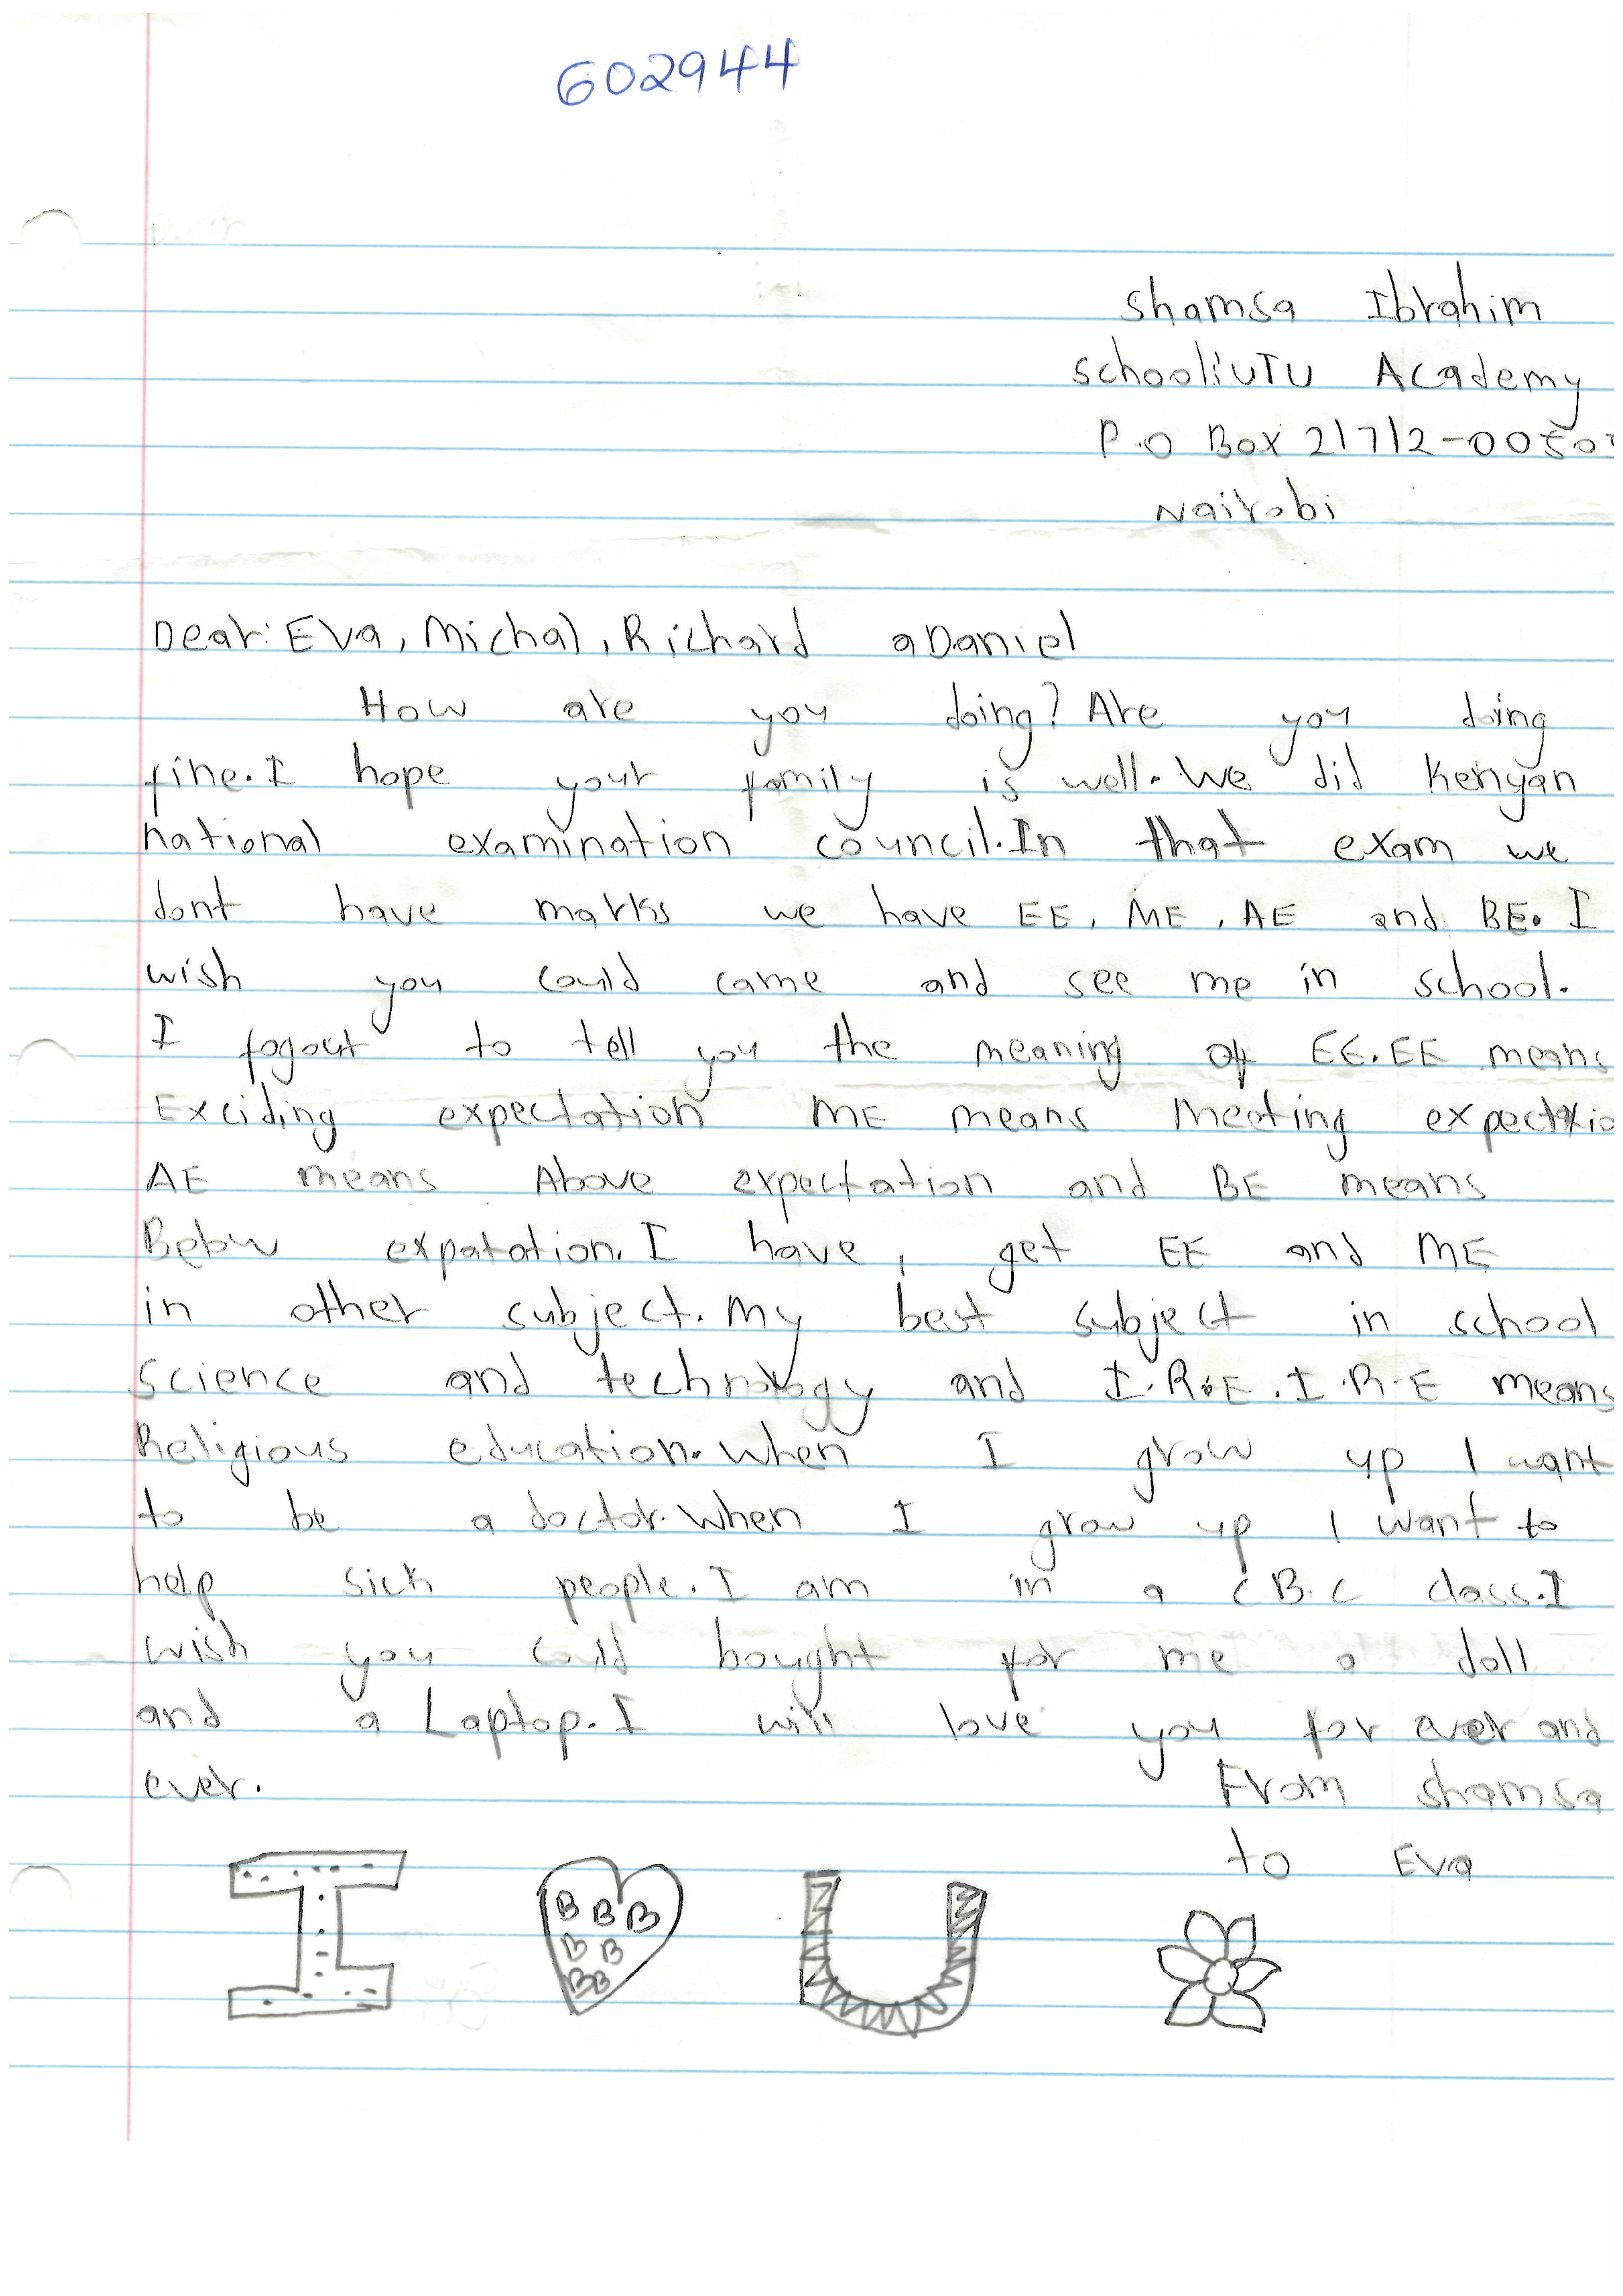 602944
Shamsa Ibrahim
school:UTU Academy
P.O Box 21712-00505
Nairobi
Dear: Eva, Michal, Richard a Daniel
How are you doing? Are you doing
fine. I hope your family is well. We did Kenyan
national examination council. In that exam we
dont have marks we have EE, ME, AE and BE. I
wish you could came and see me in school.
I fogout to tell you the meaning of EE. EE means
Exciding expectation ME means Meeting expectatio
AE means Above expectation and BE means
Below expatation. I have, get EE and ME
in other subject. My best subject in school
science and technology and I.R.E. I.R.E means
Religious education. When I grow up I want
to be a doctor. When I grow up I want to
help sick people. I am in a C.B.C class. I
wish you could bought for me a doll
and a Laptop. I will love you for ever and
ever. From shamsa
to Eva
I B B B B B B B U